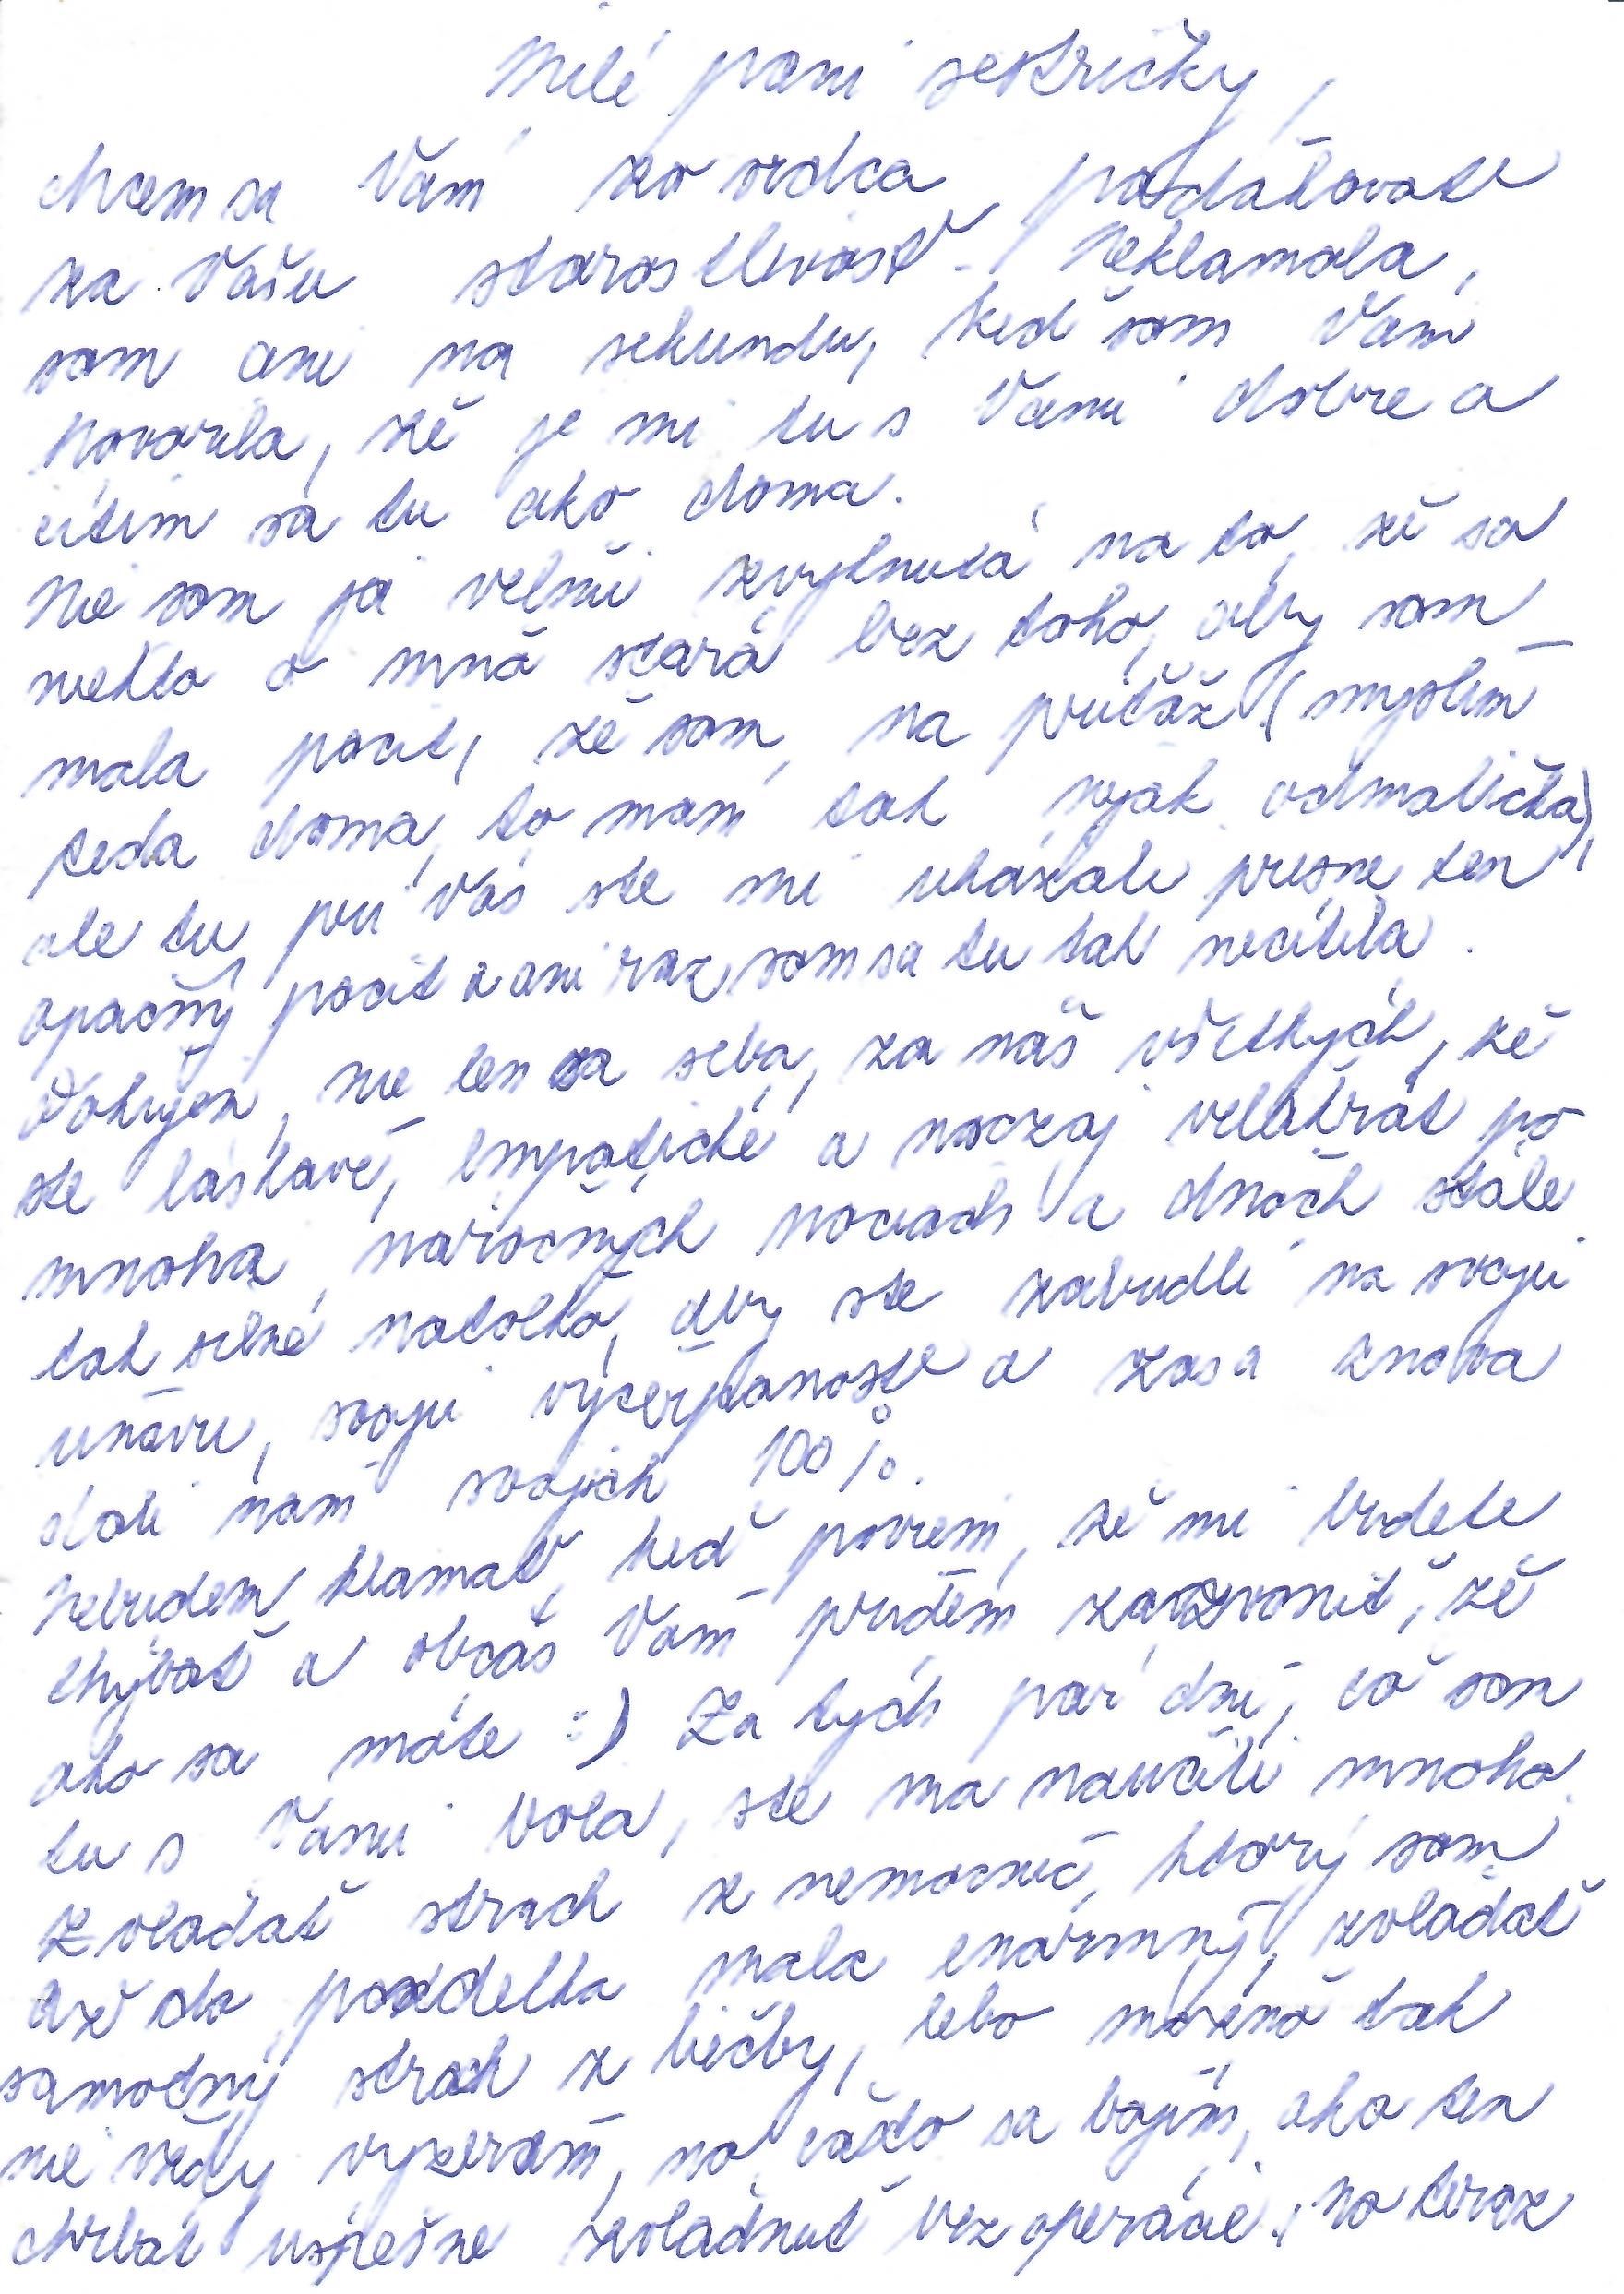 Milé pani sestričky,
chcem sa Vám zo srdca poďakovať
za Vašu starostlivosť. Neklamala
som ani na sekundu, keď som Vám
hovorila, že je mi tu s Vami dobre a
cítim sa tu ako doma.
Nie som ja veľmi zvyknutá na to, že sa
niekto o mňa stará bez toho, aby som
mala pocit, že som na príťaž (myslím
teda doma, to mám tak nejak odmalička),
ale tu pri Vás ste mi ukázali presne ten
opačný pocit a ani raz som sa tu tak necítila.
Ďakujem, nie len za seba, za nás všetkých, že
ste láskavé, empatické a naozaj veľakrát po
mnoha náročných nociach a dňoch stále
tak silné natoľko, aby ste zabudli na svoju
únavu, svoju vyčerpanosť a zasa znova
dali nám svojich 100%.
Nebudem klamať, keď poviem, že mi budete
chýbať a občas Vám prídem zazvoniť, že
ako sa máte :) Za tých pár dní, čo som
tu s Vami bola, ste ma naučili mnoho.
Zvládať strach z nemocníc, ktorý som
až do pondelka mala enormný, zvládať
samotný strach z liečby, lebo možno tak
nie vždy vyzerám, no často sa bojím, ako ten
chrbát úspešne zvládnuť bez operácie, no teraz